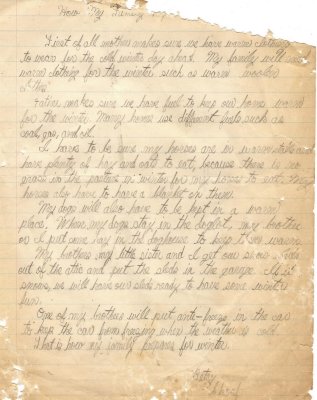 How My Family
First of all mothers makes sure we have warm clothing
to wear for the cold winter day ahead. My family will need
warm clothing for the winter such as warm woolen
Father makes sure we have fuel to keep our home warm
for the winter. Many homes use different fuels, such as
coal, gas, and oil.
I have to be sure my horses are in warm stable and
have plenty of hay and oats to eat, because there is no
grass in the pasture in winter for my horses to eat. My
horses also have to have a blanket on them.
My dogs will also have to be kept in a warm
place. When my dogs stay in the doglot, my brother
or I put some hay in the doghouse to keep them warm.
My brothers, my little sister and I get our snow sleds
out of the attic and put the sleds in the garage. If it
snows, we will have our sleds ready to have some winter
fun.
One of my brothers will put anti-freeze in the car
to keep the car from freezing when the weather is cold.
That is how my family prepares for winter.